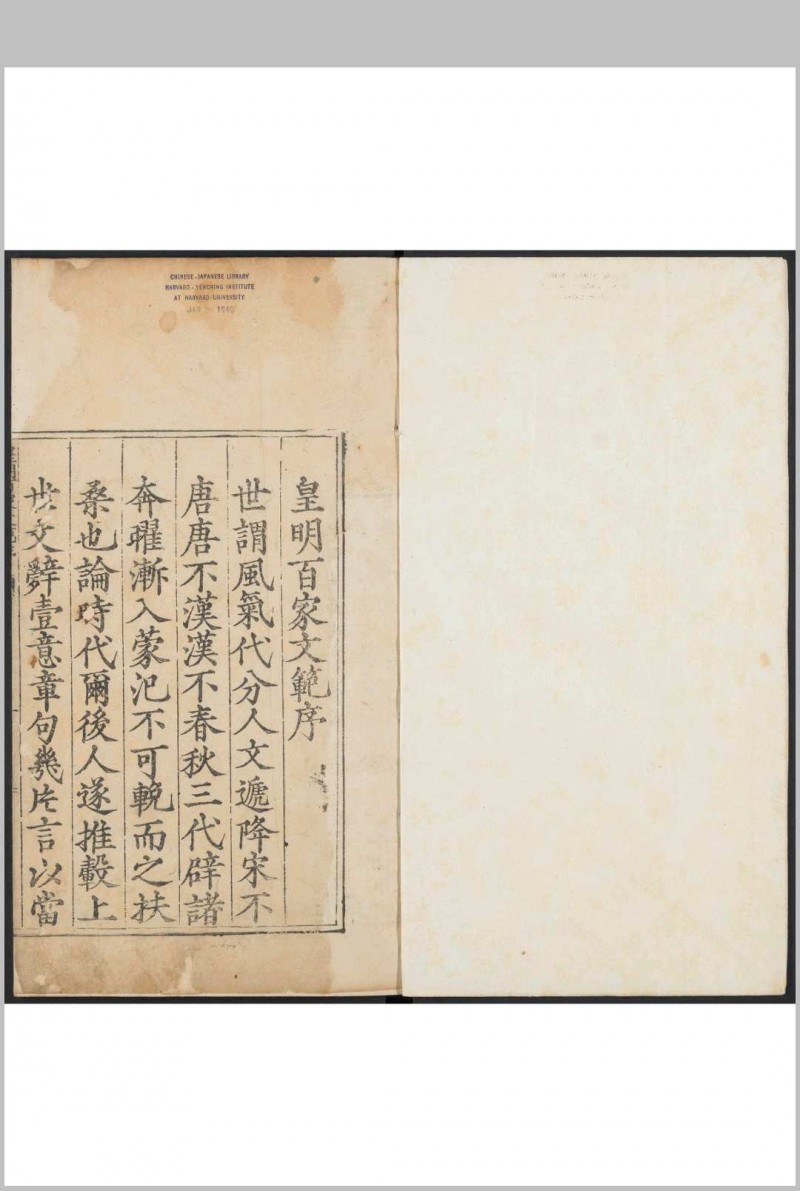 CHINESE-JAPANESE LIBRARY
HARVARD-YENCHING INSTITUTE
AT HARVARD UNIVERSITY
皇明百家文範序
世謂風氣代分人文遞降宋不
唐唐不漢漢不春秋三代辟諸
奔曜漸入蒙汜不可輓而之扶
桑也論時代爾後人遂推轂上
世文辭壹意章句幾片言以當